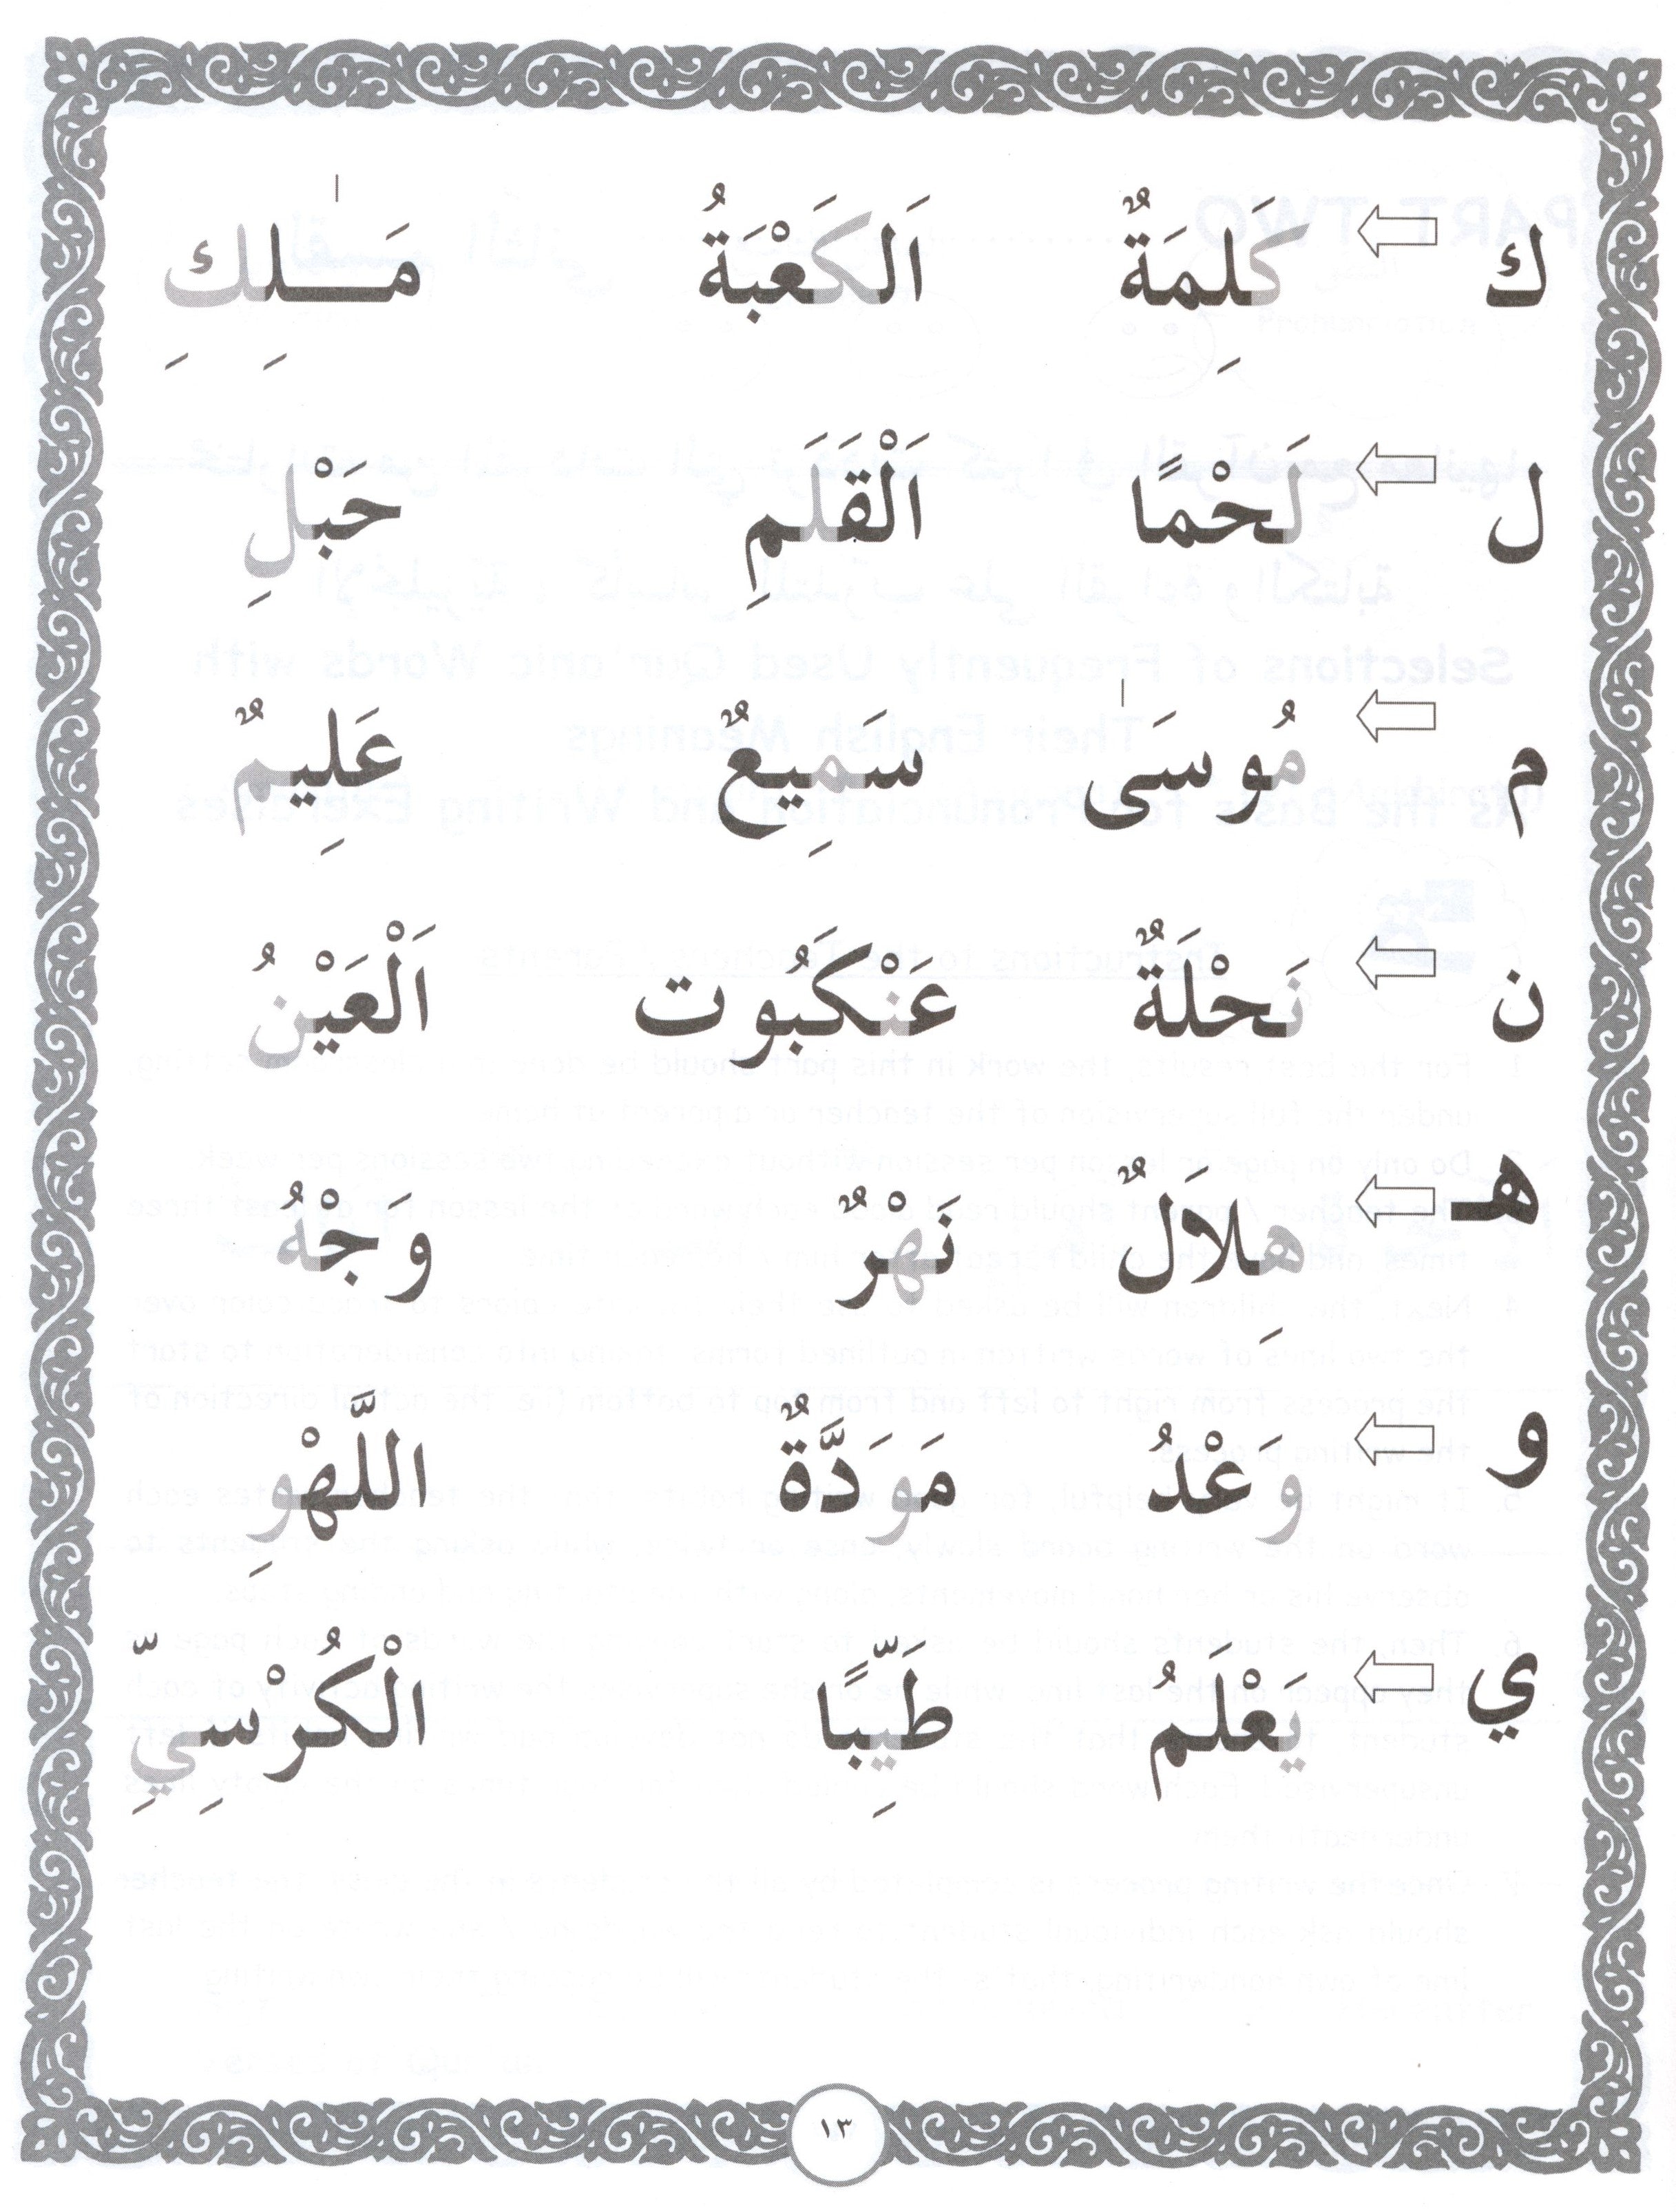 ك ⇦ كَلِمَةٌ اَلكَعْبَةُ مَـٰلِكِ
ل ⇦ لَحْمًا اَلْقَلَمِ حَبْلِ
م ⇦ مُوسَىٰ سَمِيعٌ عَلِيمٌ
ن ⇦ نَحْلَةٌ عَنْكَبُوت اَلْعَيْنُ
هـ ⇦ هِلاَلٌ نَهْرٌ وَجْهُ
و ⇦ وَعْدُ مَوَدَّةٌ اللَّهْوِ
ي ⇦ يَعْلَمُ طَيِّبًا الْكُرْسِيِّ
١٣